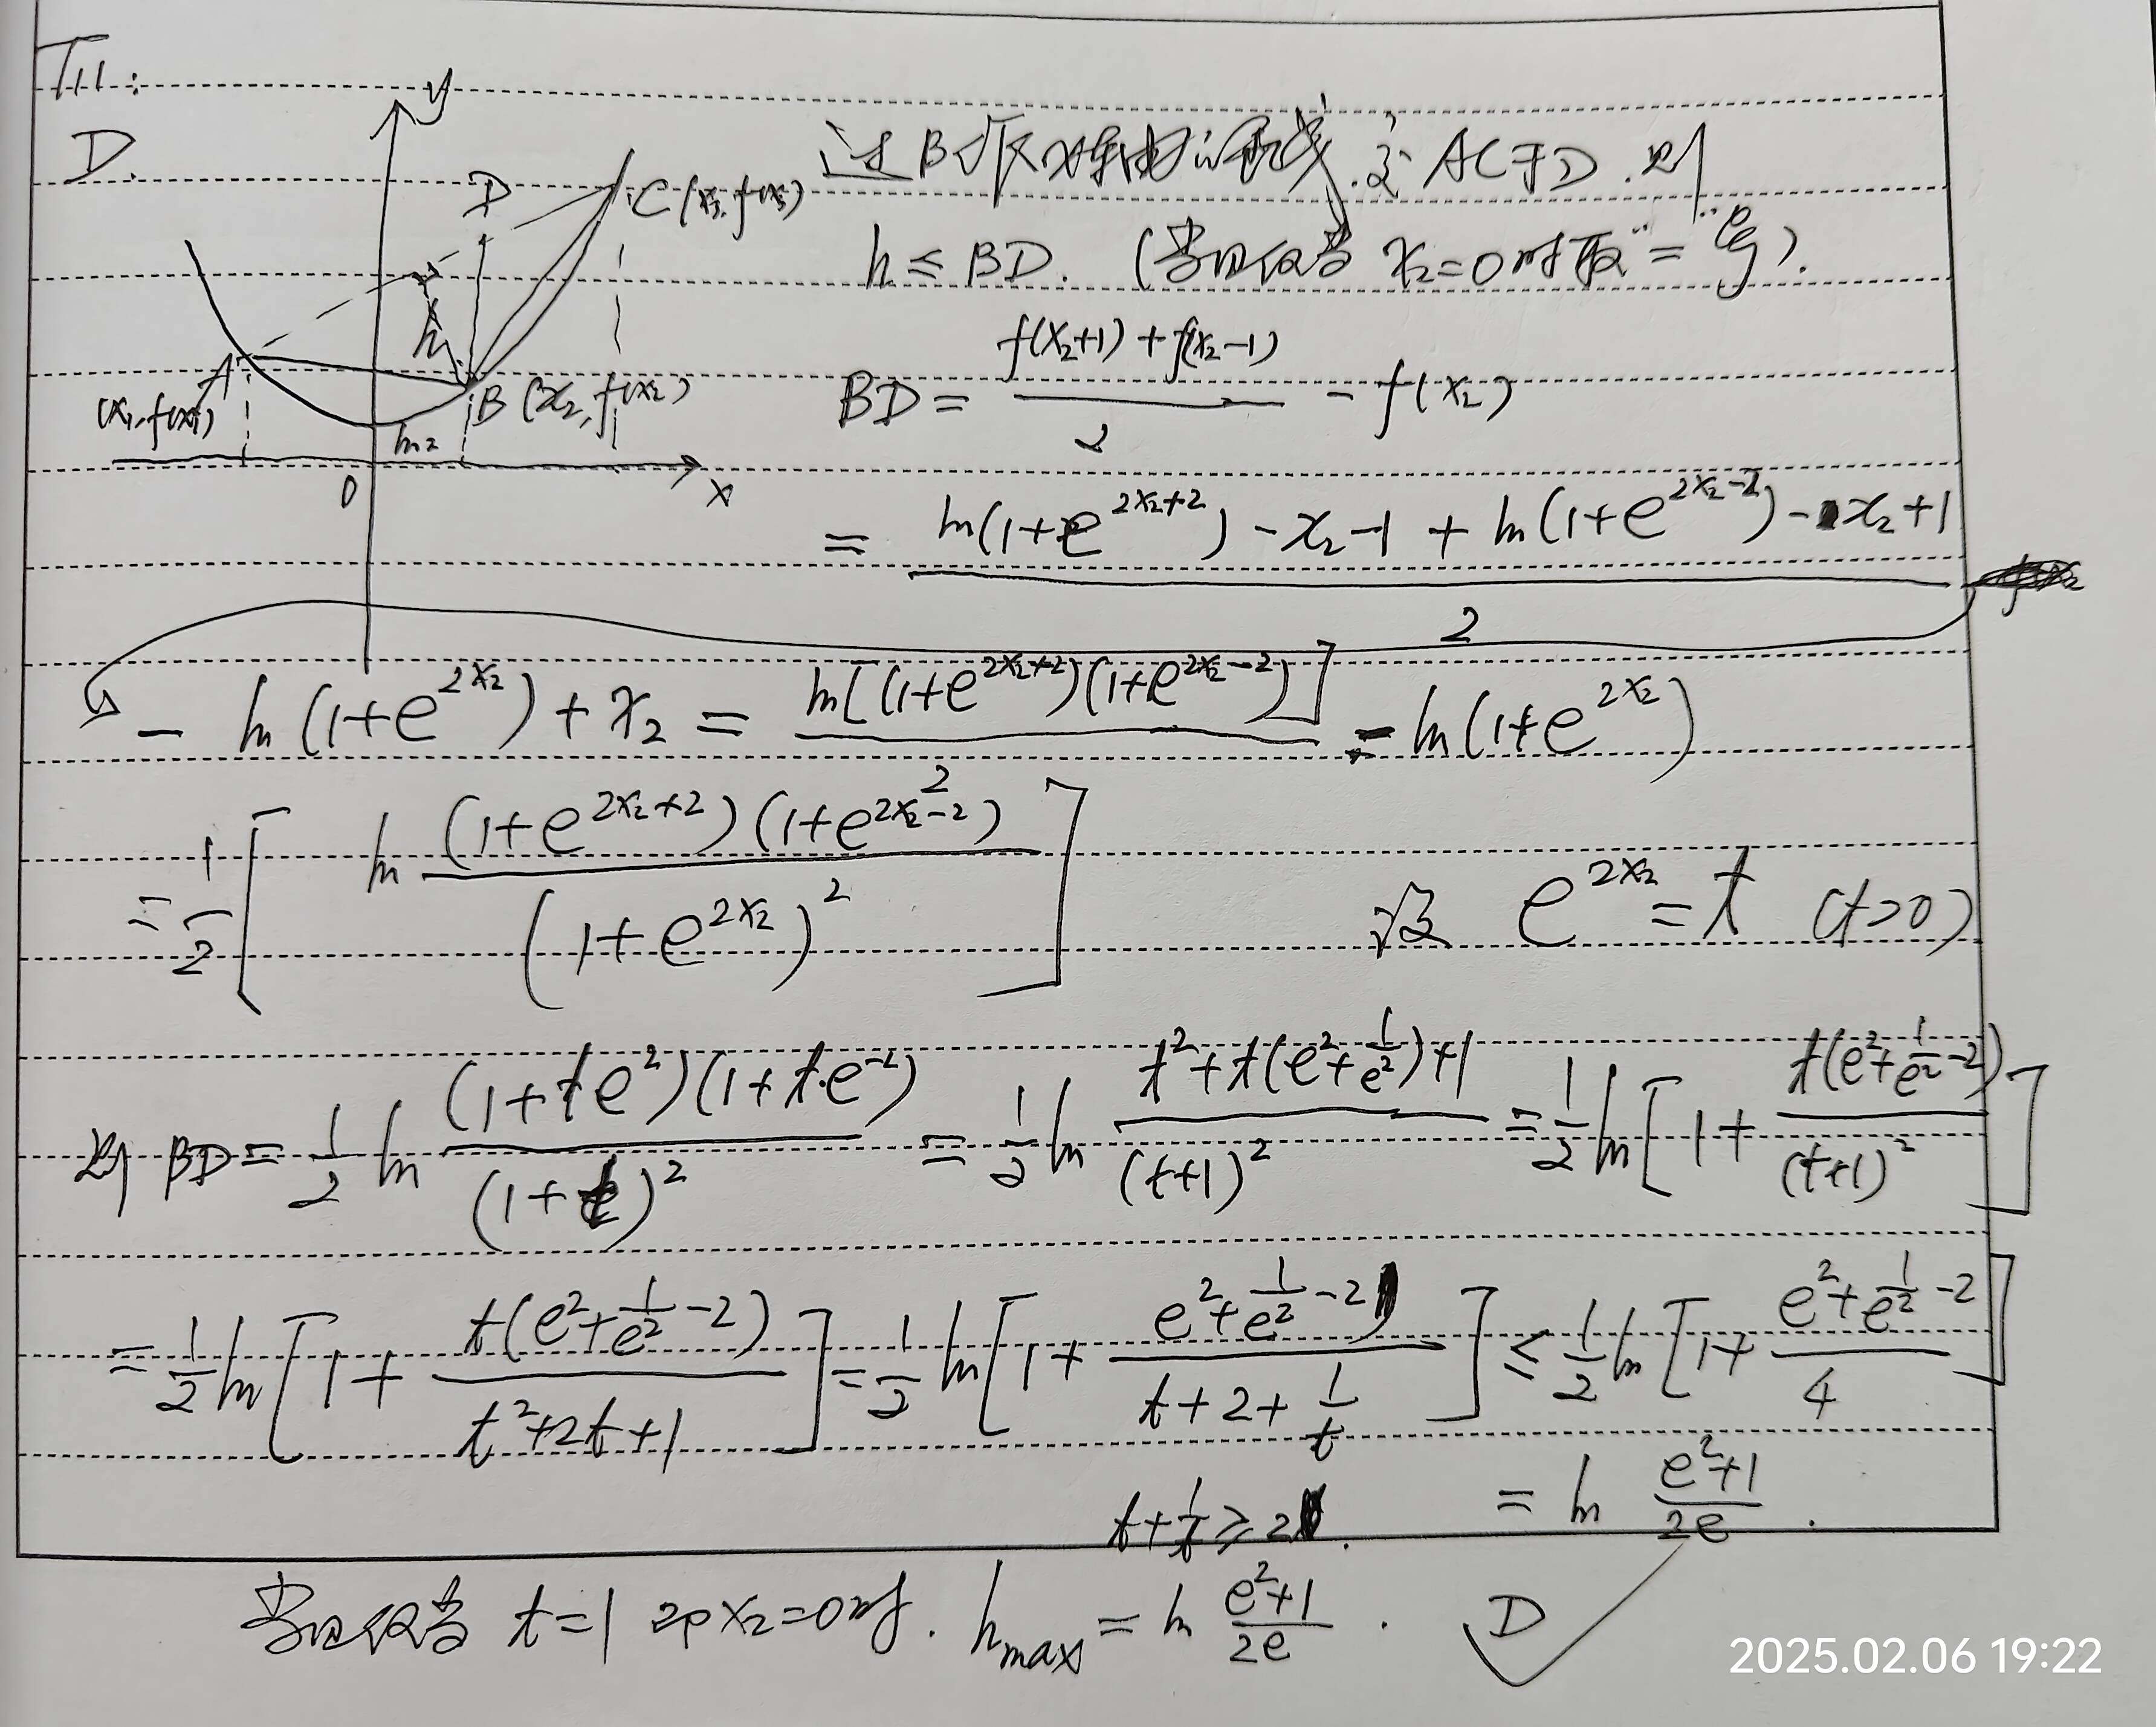 T11:
D.
y
D
C(x₃,f(x₃)
h
A
(x₁,f(x₁)
B(x₂,f(x₂)
ln2
0
x
过B作x轴的垂线.交AC于D.则
h≤BD.(当且仅当 x₂=0时取"="号).
BD = \frac{f(x₂+1)+f(x₂-1)}{2} - f(x₂)
= \frac{ln(1+e^{2x₂+2})-x₂-1+ln(1+e^{2x₂-2})-x₂+1}{2}
- ln(1+e^{2x₂})+x₂ = \frac{ln[(1+e^{2x₂+2})(1+e^{2x₂-2})]}{2} - ln(1+e^{2x₂})
= \frac{1}{2}[ln\frac{(1+e^{2x₂+2})(1+e^{2x₂-2})}{(1+e^{2x₂})^2}] 设 e^{2x₂}=t (t>0)
则 BD = \frac{1}{2}ln\frac{(1+te^2)(1+t·e^{-2})}{(1+t)^2} = \frac{1}{2}ln\frac{t^2+t(e^2+\frac{1}{e^2})+1}{(t+1)^2} = \frac{1}{2}ln[1+\frac{t(e^2+\frac{1}{e^2}-2)}{(t+1)^2}]
= \frac{1}{2}ln[1+\frac{t(e^2+\frac{1}{e^2}-2)}{t^2+2t+1}] = \frac{1}{2}ln[1+\frac{e^2+\frac{1}{e^2}-2}{t+2+\frac{1}{t}}] ≤ \frac{1}{2}ln[1+\frac{e^2+\frac{1}{e^2}-2}{4}]
t+\frac{1}{t}≥2. = ln\frac{e^2+1}{2e}.
当且仅当 t=1 即x₂=0时. h_{max} = ln\frac{e^2+1}{2e}. D
2025.02.06 19:22